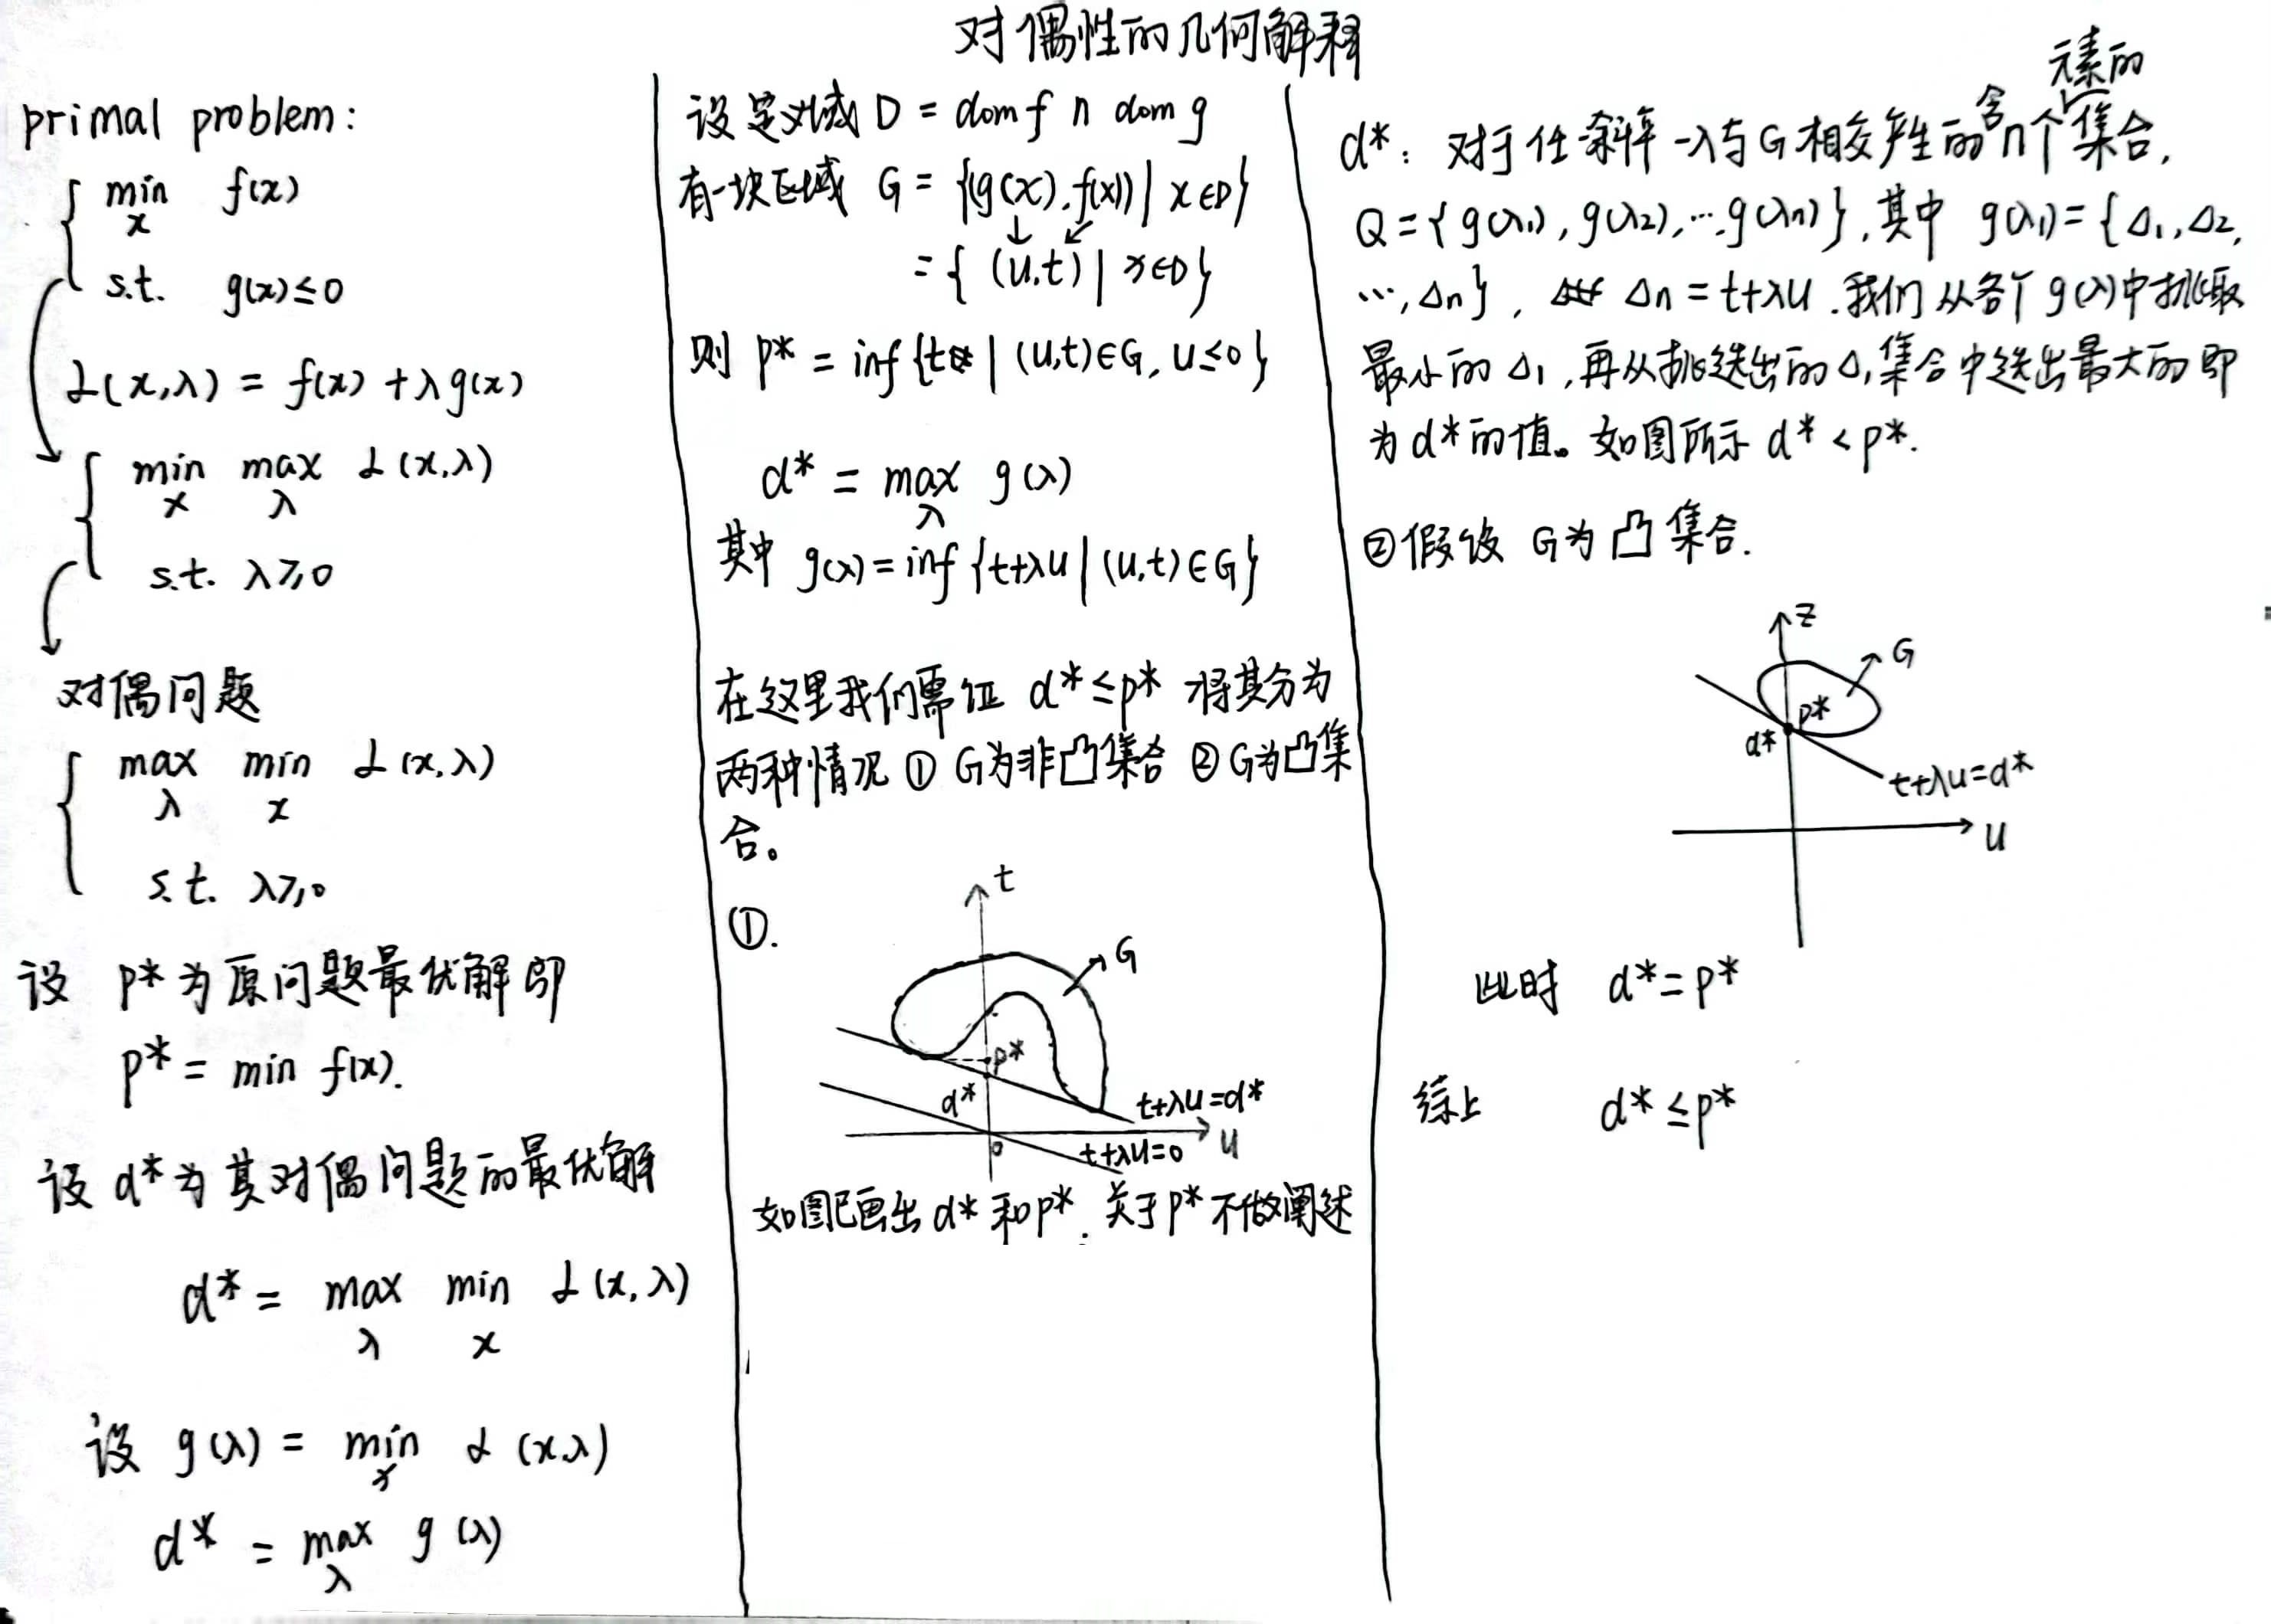 对偶性的几何解释
primal problem:
min f(x)
x
s.t. g(x)≤0
L(x,λ) = f(x) + λg(x)
min max L(x,λ)
x λ
s.t. λ≥0
对偶问题
max min L(x,λ)
λ x
s.t. λ≥0
设 p* 为原问题最优解即
p* = min f(x).
设 d* 为其对偶问题的最优解
d* = max min L(x,λ)
λ x
设 g(λ) = min L(x,λ)
x
d* = max g(λ)
λ
设定义域 D = dom f ∩ dom g
有一块区域 G = {(g(x), f(x)) | x∈D}
↓ ↙
= { (u,t) | x∈D}
则 p* = inf {t | (u,t)∈G, u≤0}
d* = max g(λ)
λ
其中 g(λ) = inf {t+λu | (u,t)∈G}
在这里我们需证 d*≤p* 将其分为
两种情况 ① G为非凸集合 ② G为凸集
合。
①.
t
G
p*
d*
t+λu=d*
0
t+λu=0
u
如图已画出 d* 和 p*. 关于 p* 不做阐述
元素的
d*: 对于任斜率 -λ与G相交产生的含n个集合,
Q = {g(λ1), g(λ2), …, g(λn)}, 其中 g(λ1) = {Δ1, Δ2,
…, Δn}, Δn = t+λu. 我们从各个 g(λ)中挑取
最小的 Δ1, 再从挑选出的Δ1集合中选出最大的即
为 d* 的值。如图所示 d* < p*.
②假设 G为凸集合.
z
G
p*
d*
t+λu=d*
u
此时 d* = p*
综上 d* ≤ p*